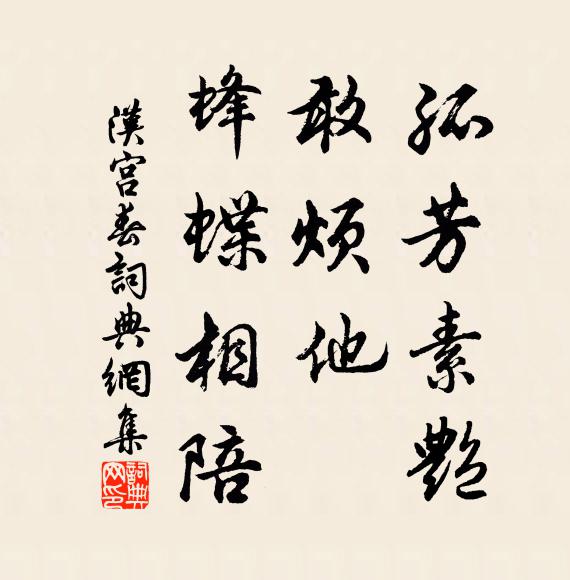 孤芳素艷
敢煩他
蜂蝶相陪
漢宮春詞典網集
詞典网印